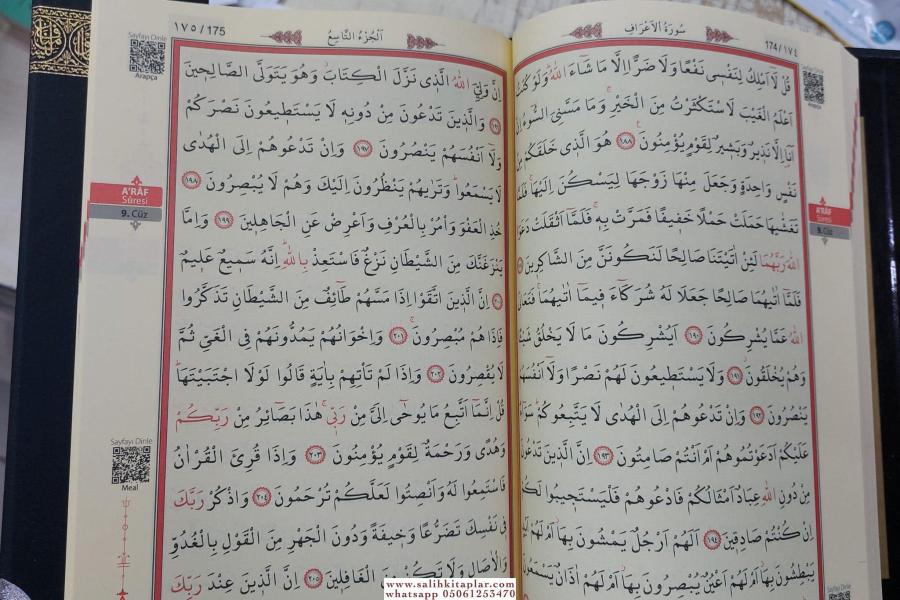 174/١٧٤
سُورَةُ الْاَعْرَافِ
قُلْ لَٓا اَمْلِكُ لِنَفْسٖي نَفْعًا وَلَا ضَرًّا اِلَّا مَا شَٓاءَ اللّٰهُ وَلَوْ كُنْتُ
اَعْلَمُ الْغَيْبَ لَاسْتَكْثَرْتُ مِنَ الْخَيْرِ وَمَا مَسَّنِيَ السُّٓوءُ اِنْ
اَنَا۬ اِلَّا نَذٖيرٌ وَبَشٖيرٌ لِقَوْمٍ يُؤْمِنُونَ ١٨٨ هُوَ الَّذٖي خَلَقَكُمْ مِنْ
نَفْسٍ وَاحِدَةٍ وَجَعَلَ مِنْهَا زَوْجَهَا لِيَسْكُنَ اِلَيْهَا فَلَمَّا
تَغَشّٰيهَا حَمَلَتْ حَمْلًا خَفٖيفًا فَمَرَّتْ بِهٖ فَلَمَّٓا اَثْقَلَتْ دَعَوَا
اللّٰهَ رَبَّهُمَا لَئِنْ اٰتَيْتَنَا صَالِحًا لَنَكُونَنَّ مِنَ الشَّاكِرٖينَ
فَلَمَّٓا اٰتٰيهُمَا صَالِحًا جَعَلَا لَهُ شُرَكَٓاءَ فٖيمَٓا اٰتٰيهُمَا فَتَعَالَى
اللّٰهُ عَمَّا يُشْرِكُونَ ١٩٠ اَيُشْرِكُونَ مَا لَا يَخْلُقُ شَيْـًٔا
وَهُمْ يُخْلَقُونَ ١٩١ وَلَا يَسْتَطٖيعُونَ لَهُمْ نَصْرًا وَلَٓا اَنْفُسَهُمْ
يَنْصُرُونَ ١٩٢ وَاِنْ تَدْعُوهُمْ اِلَى الْهُدٰى لَا يَتَّبِعُوكُمْ سَوَٓاءٌ
عَلَيْكُمْ اَدَعَوْتُمُوهُمْ اَمْ اَنْتُمْ صَامِتُونَ ١٩٣ اِنَّ الَّذٖينَ تَدْعُونَ
مِنْ دُونِ اللّٰهِ عِبَادٌ اَمْثَالُكُمْ فَادْعُوهُمْ فَلْيَسْتَجٖيبُوا لَكُمْ
اِنْ كُنْتُمْ صَادِقٖينَ ١٩٤ اَلَهُمْ اَرْجُلٌ يَمْشُونَ بِهَٓا اَمْ لَهُمْ اَيْدٍ
يَبْطِشُونَ بِهَٓا اَمْ لَهُمْ اَعْيُنٌ يُبْصِرُونَ بِهَٓا اَمْ لَهُمْ اٰذَانٌ يَسْمَعُونَ
A'RÂF
Sûresi
9. Cüz
١٧٥/175
اَلْجُزْءُ التَّاسِعُ
اِنَّ وَلِيِّيَ اللّٰهُ الَّذٖي نَزَّلَ الْكِتَابَ وَهُوَ يَتَوَلَّى الصَّالِحٖينَ
١٩٦ وَالَّذٖينَ تَدْعُونَ مِنْ دُونِهٖ لَا يَسْتَطٖيعُونَ نَصْرَكُمْ
وَلَٓا اَنْفُسَهُمْ يَنْصُرُونَ ١٩٧ وَاِنْ تَدْعُوهُمْ اِلَى الْهُدٰى
لَا يَسْمَعُوا وَتَرٰيهُمْ يَنْظُرُونَ اِلَيْكَ وَهُمْ لَا يُبْصِرُونَ ١٩٨
خُذِ الْعَفْوَ وَأْمُرْ بِالْعُرْفِ وَاَعْرِضْ عَنِ الْجَاهِلٖينَ ١٩٩ وَاِمَّا
يَنْزَغَنَّكَ مِنَ الشَّيْطَانِ نَزْغٌ فَاسْتَعِذْ بِاللّٰهِ اِنَّهُ سَمٖيعٌ عَلٖيمٌ
٢٠٠ اِنَّ الَّذٖينَ اتَّقَوْا اِذَا مَسَّهُمْ طَٓائِفٌ مِنَ الشَّيْطَانِ تَذَكَّرُوا
فَاِذَا هُمْ مُبْصِرُونَ ٢٠١ وَاِخْوَانُهُمْ يَمُدُّونَهُمْ فِي الْغَيِّ ثُمَّ
لَا يُقْصِرُونَ ٢٠٢ وَاِذَا لَمْ تَأْتِهِمْ بِاٰيَةٍ قَالُوا لَوْلَا اجْتَبَيْتَهَا
قُلْ اِنَّمَٓا اَتَّبِعُ مَا يُوحٰٓى اِلَيَّ مِنْ رَبّٖي هٰذَا بَصَٓائِرُ مِنْ رَبِّكُمْ
وَهُدًى وَرَحْمَةٌ لِقَوْمٍ يُؤْمِنُونَ ٢٠٣ وَاِذَا قُرِئَ الْقُرْاٰنُ
فَاسْتَمِعُوا لَهُ وَاَنْصِتُوا لَعَلَّكُمْ تُرْحَمُونَ ٢٠٤ وَاذْكُرْ رَبَّكَ
فٖي نَفْسِكَ تَضَرُّعًا وَخٖيفَةً وَدُونَ الْجَهْرِ مِنَ الْقَوْلِ بِالْغُدُوِّ
وَالْاٰصَالِ وَلَا تَكُنْ مِنَ الْغَافِلٖينَ ٢٠٥ اِنَّ الَّذٖينَ عِنْدَ رَبِّكَ
Sayfayı Dinle
Arapça
A'RÂF
Sûresi
9. Cüz
Sayfayı Dinle
Meal
www.salihkitaplar.com
whatsapp 05061253470